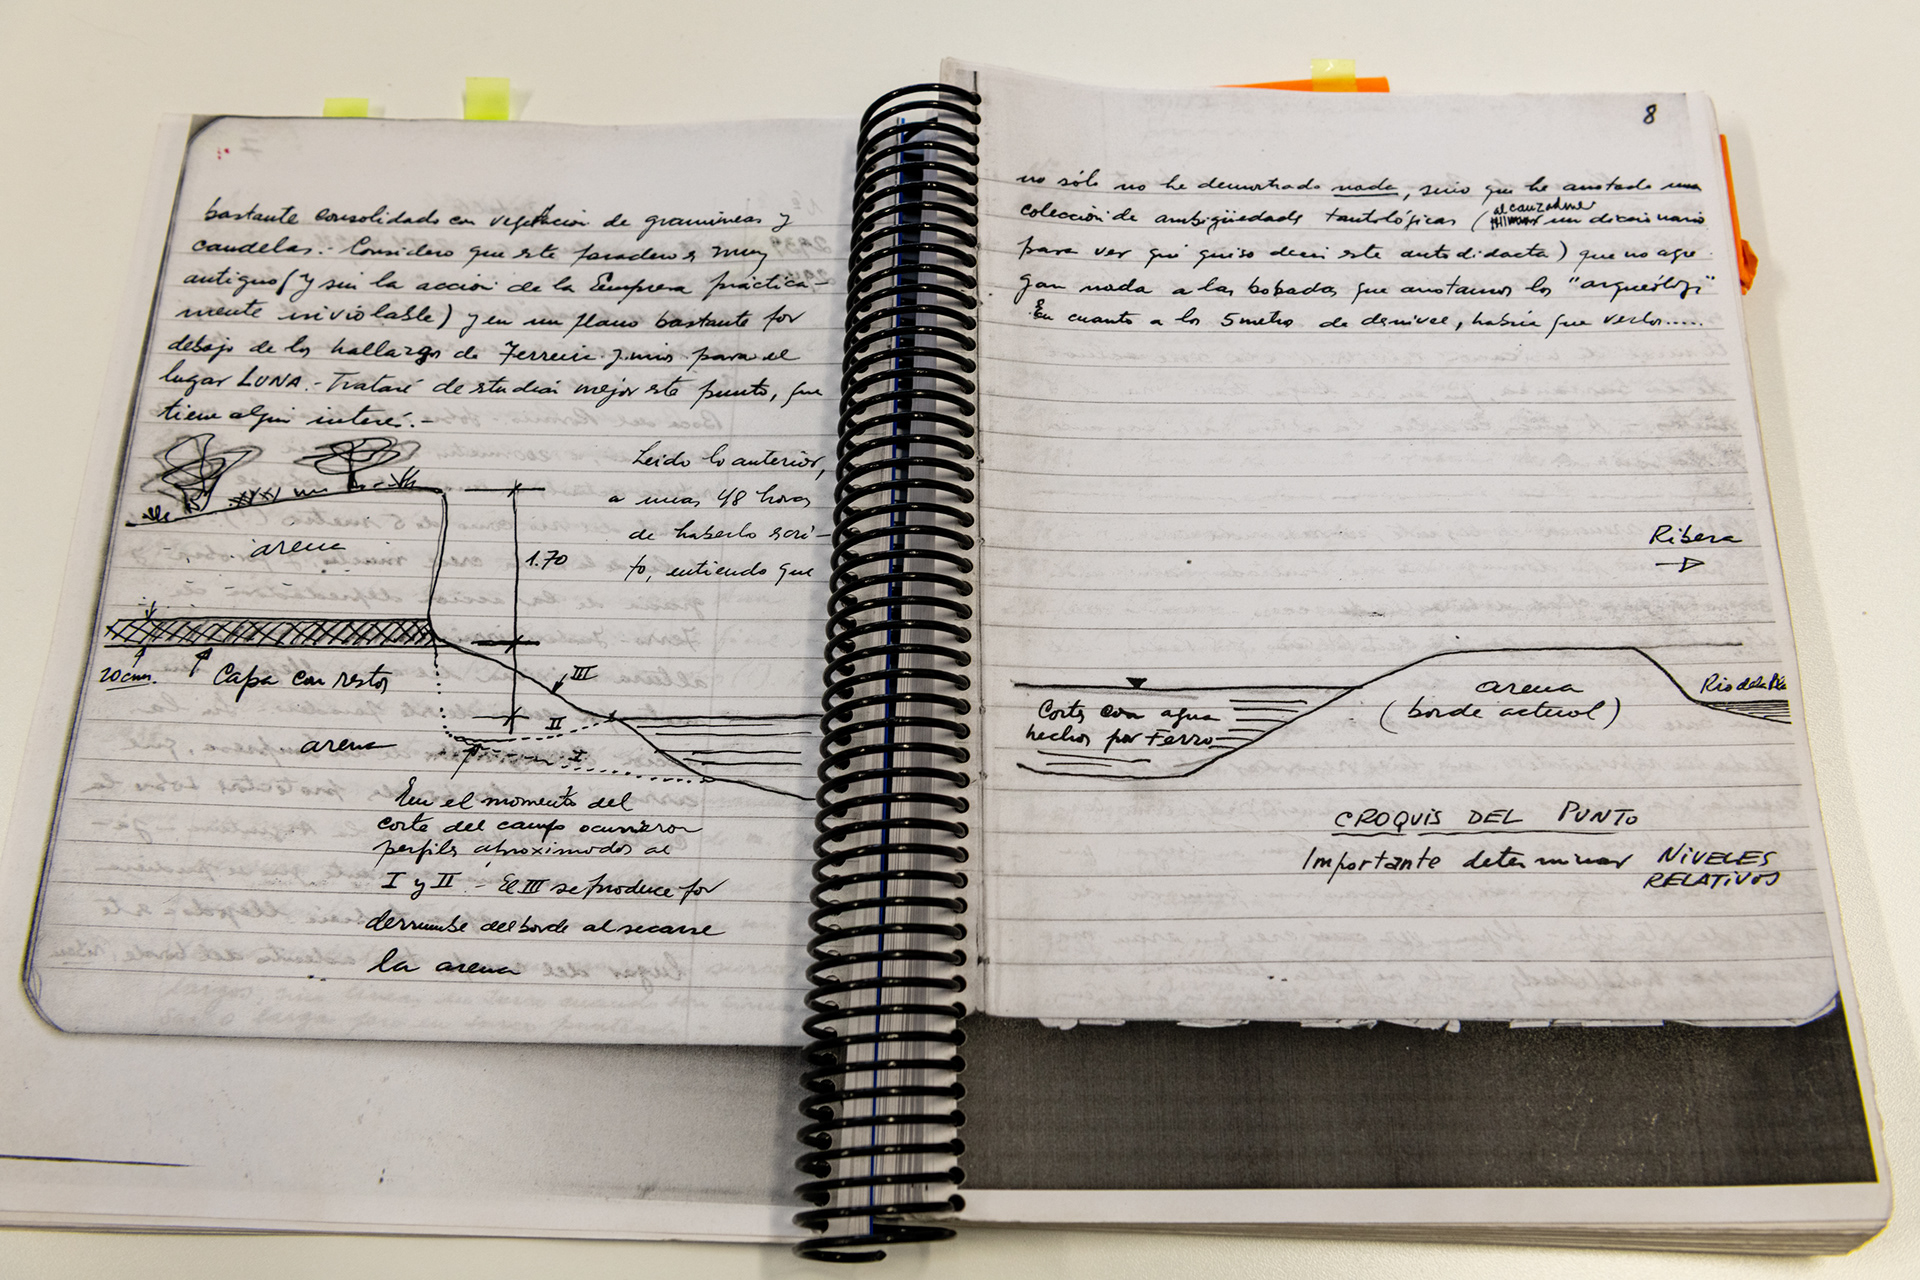 bastante consolidado con vegetación de gramíneas y
candelas.- Considero que este paradero es muy
antiguo (y sin la acción de la Empresa práctica-
mente inviolable) y en un plano bastante por
debajo de los hallazgos de Ferreira y mis para el
lugar LUNA.- Trataré de estudiar mejor este punto, que
tiene algún interés.-
Leido lo anterior,
a unas 48 horas
de haberlo scri-
to, entiendo que
arena
1.70
20 cms.
Capa con restos
III
II
I
arena
En el momento del
corte del campo ocurrieron
perfiles aproximados al
I y II.- El III se produce por
derrumbe del borde al secarse
la arena
8
no sólo no he demostrado nada, sino que he anotado una
colección de ambigüedades tautológicas (alcanzadme un diccionario
para ver qué quiso decir este autodidacta) que no agre-
gan nada a las bobadas que anotamos los "arqueólogs"
En cuanto a los 5 metros de desnivel, habría que verlos.....
Ribera
Cortes con agua
hechos por Ferro
arena
(borde actual)
Rio de la Pta
CROQUIS DEL PUNTO
Importante determinar NIVELES
RELATIVOS